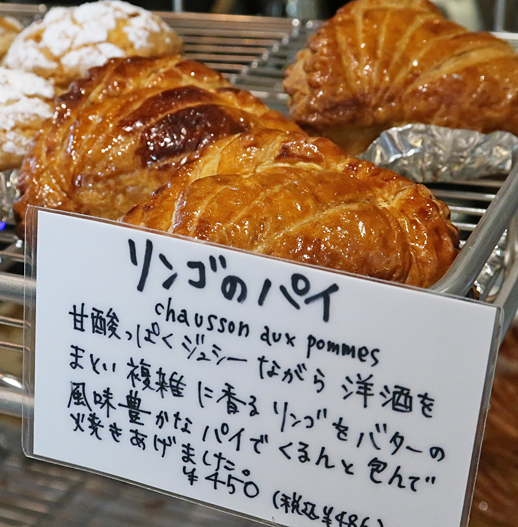 リンゴのパイ
chausson aux pommes
甘酸っぱくジューシーながら 洋酒を
まとい 複雑に香る リンゴを バターの
風味豊かな パイで くるんと 包んで
火焼きあげました。
¥450 (税込¥486)